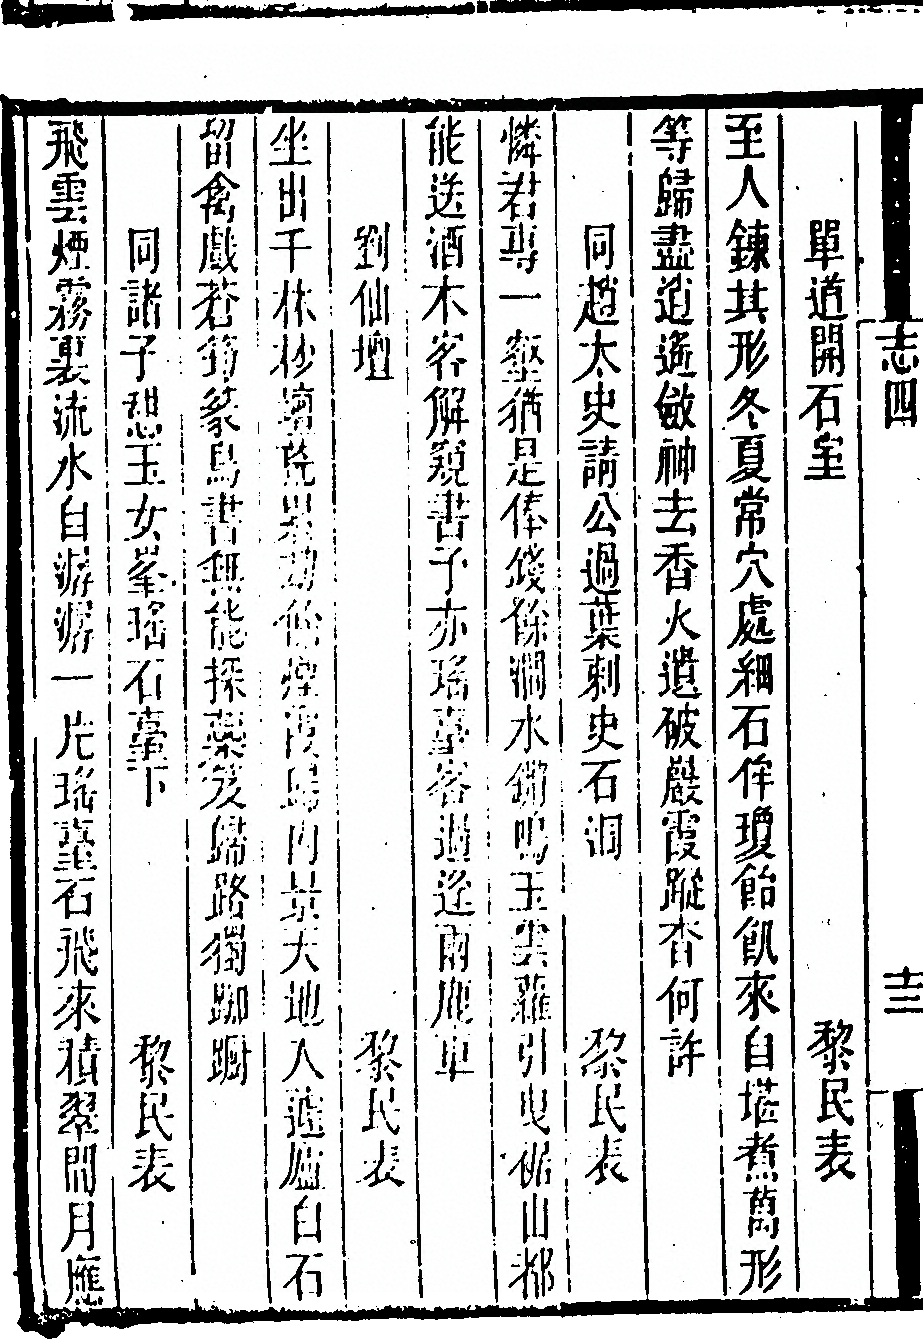 志四
十三
單道開石室 黎民表
至人鍊其形冬夏常穴處細石侔瓊飴飢來自堪煮萬形
等歸盡逍遙斂神去香火遺破巖霞蹤杳何許
同趙太史請公過葉刺史石洞 黎民表
憐君專一壑猶是俸錢餘澗水鏘鳴玉雲蘿引曳裾山都
能送酒木客解窺書予亦瑤臺客過逢兩鹿車
劉仙壇 黎民表
坐出千林杪壇荒累劫餘煙霞歸內景天地入蘧廬白石
留禽戲蒼筠篆鳥書無能採藥笈歸路獨踟躕
同諸子憩玉女峯瑤石臺下 黎民表
飛雲煙霧裏流水自潺潺一片瑤臺石飛來積翠間月應